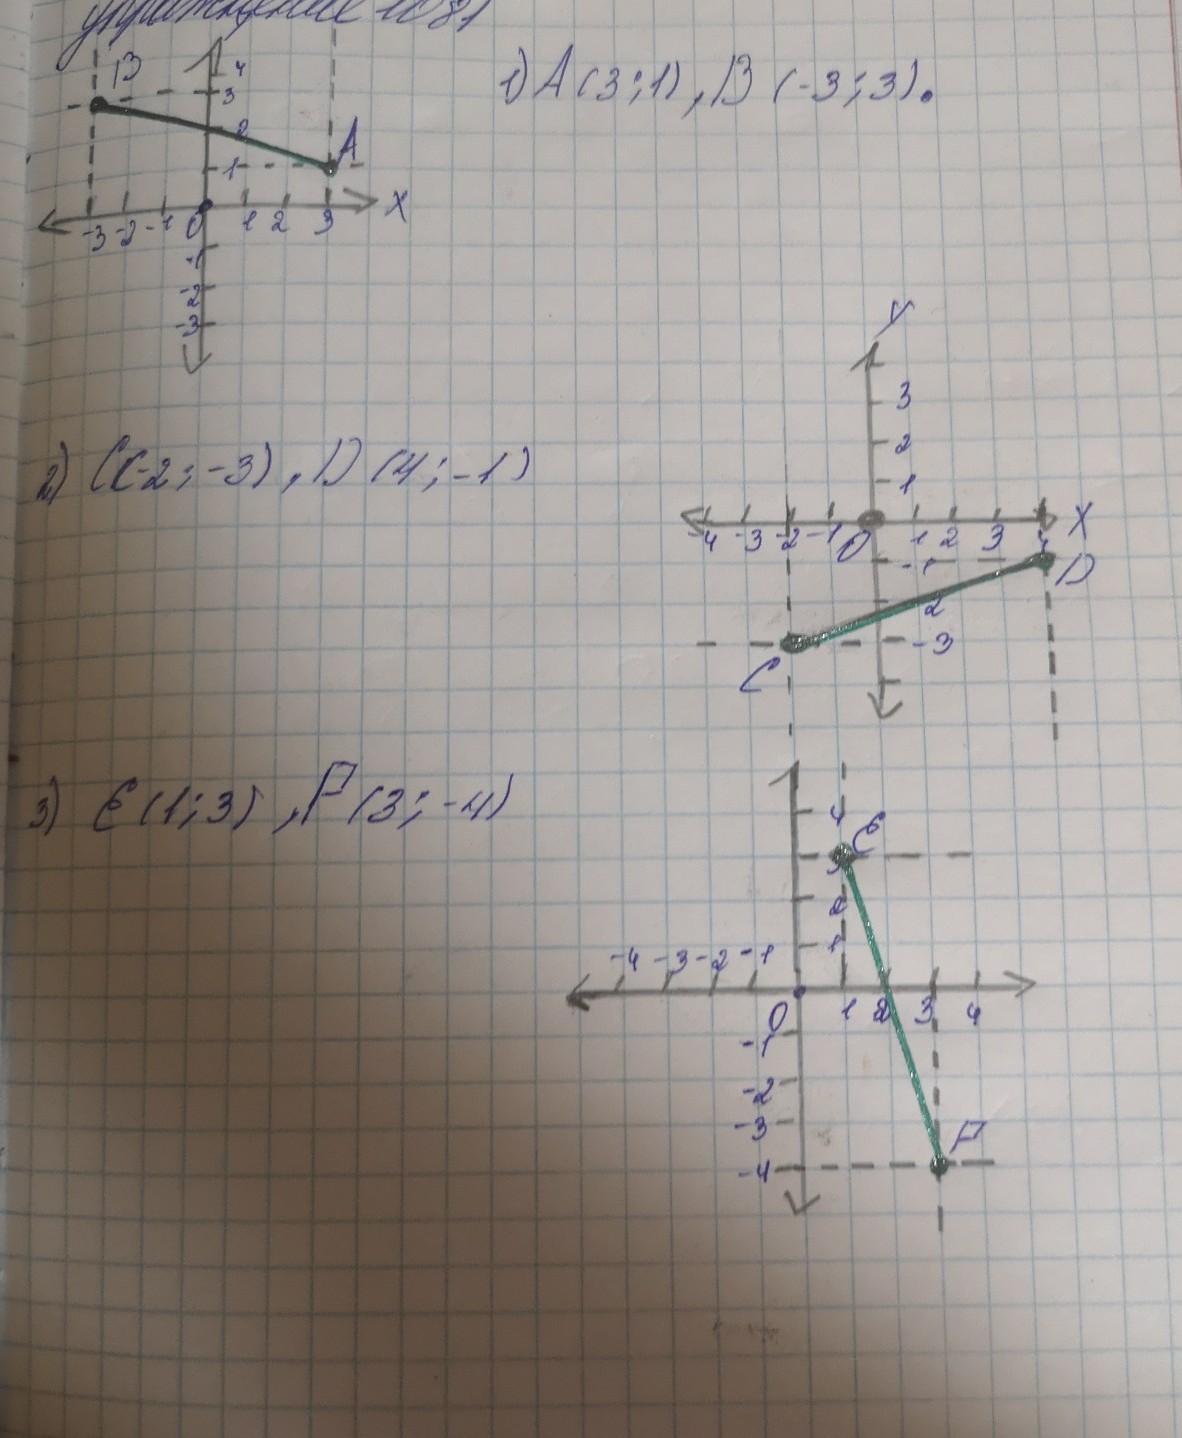 упражнение 1081
1) A (3;1), B (-3;3).
B
4
3
2
A
1
X
-3 -2 -1 0 1 2 3
-1
-2
-3
Y
3
2
1
2) C(-2;-3), D (4;-1)
X
-4 -3 -2 -1 0 1 2 3 4
-1
D
2
-3
C
3) E (1;3), F (3;-4)
4
E
3
2
1
-4 -3 -2 -1
0 1 2 3 4
-1
-2
-3
F
-4